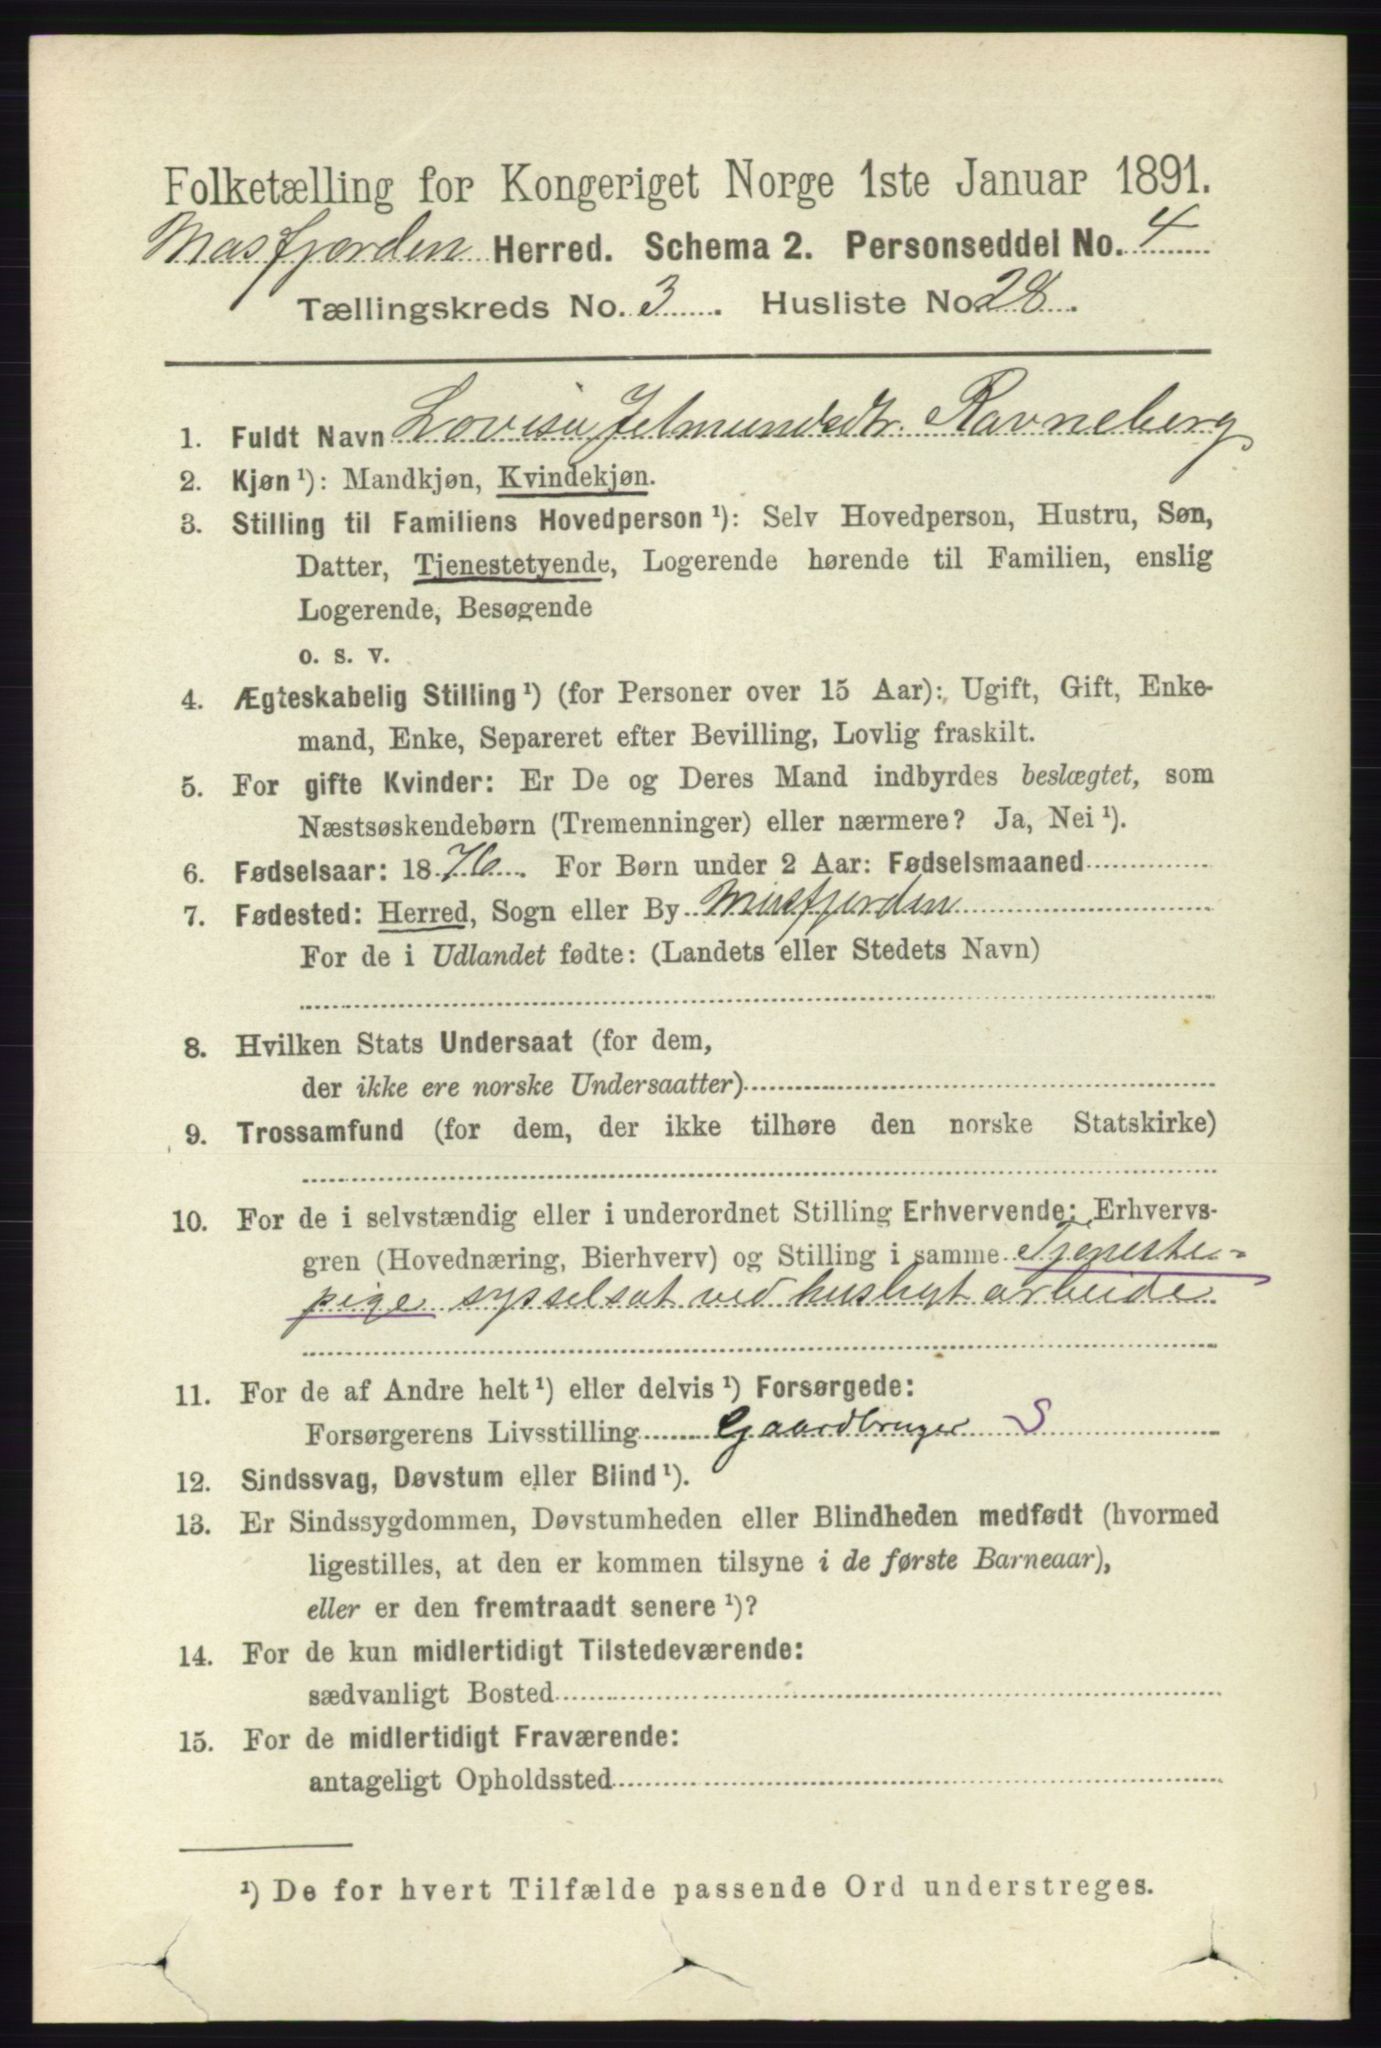 Folketælling for Kongeriget Norge 1ste Januar 1891.
Masfjorden Herred. Schema 2. Personseddel No. 4
Tællingskreds No. 3. Husliste No. 28.
1. Fuldt Navn Lovisa Jetmundsdtr. Ravneberg
2. Kjøn ¹): Mandkjøn, Kvindekjøn.
3. Stilling til Familiens Hovedperson ¹): Selv Hovedperson, Hustru, Søn,
Datter, Tjenestetyende, Logerende hørende til Familien, enslig
Logerende, Besøgende
o. s. v.
4. Ægteskabelig Stilling ¹) (for Personer over 15 Aar): Ugift, Gift, Enke-
mand, Enke, Separeret efter Bevilling, Lovlig fraskilt.
5. For gifte Kvinder: Er De og Deres Mand indbyrdes beslægtet, som
Næstsøskendebørn (Tremenninger) eller nærmere? Ja, Nei ¹).
6. Fødselsaar: 1876. For Børn under 2 Aar: Fødselsmaaned
7. Fødested: Herred, Sogn eller By Masfjorden
For de i Udlandet fødte: (Landets eller Stedets Navn)
8. Hvilken Stats Undersaat (for dem,
der ikke ere norske Undersaatter)
9. Trossamfund (for dem, der ikke tilhøre den norske Statskirke)
10. For de i selvstændig eller i underordnet Stilling Erhvervende: Erhvervs-
gren (Hovednæring, Bierhverv) og Stilling i samme Tjeneste-
pige sysselsat ved husligt arbeide
11. For de af Andre helt ¹) eller delvis ¹) Forsørgede:
Forsørgerens Livsstilling Gaardbruger S
12. Sindssvag, Døvstum eller Blind ¹).
13. Er Sindssygdommen, Døvstumheden eller Blindheden medfødt (hvormed
ligestilles, at den er kommen tilsyne i de første Barneaar),
eller er den fremtraadt senere ¹)?
14. For de kun midlertidigt Tilstedeværende:
sædvanligt Bosted
15. For de midlertidigt Fraværende:
antageligt Opholdssted
¹) De for hvert Tilfælde passende Ord understreges.